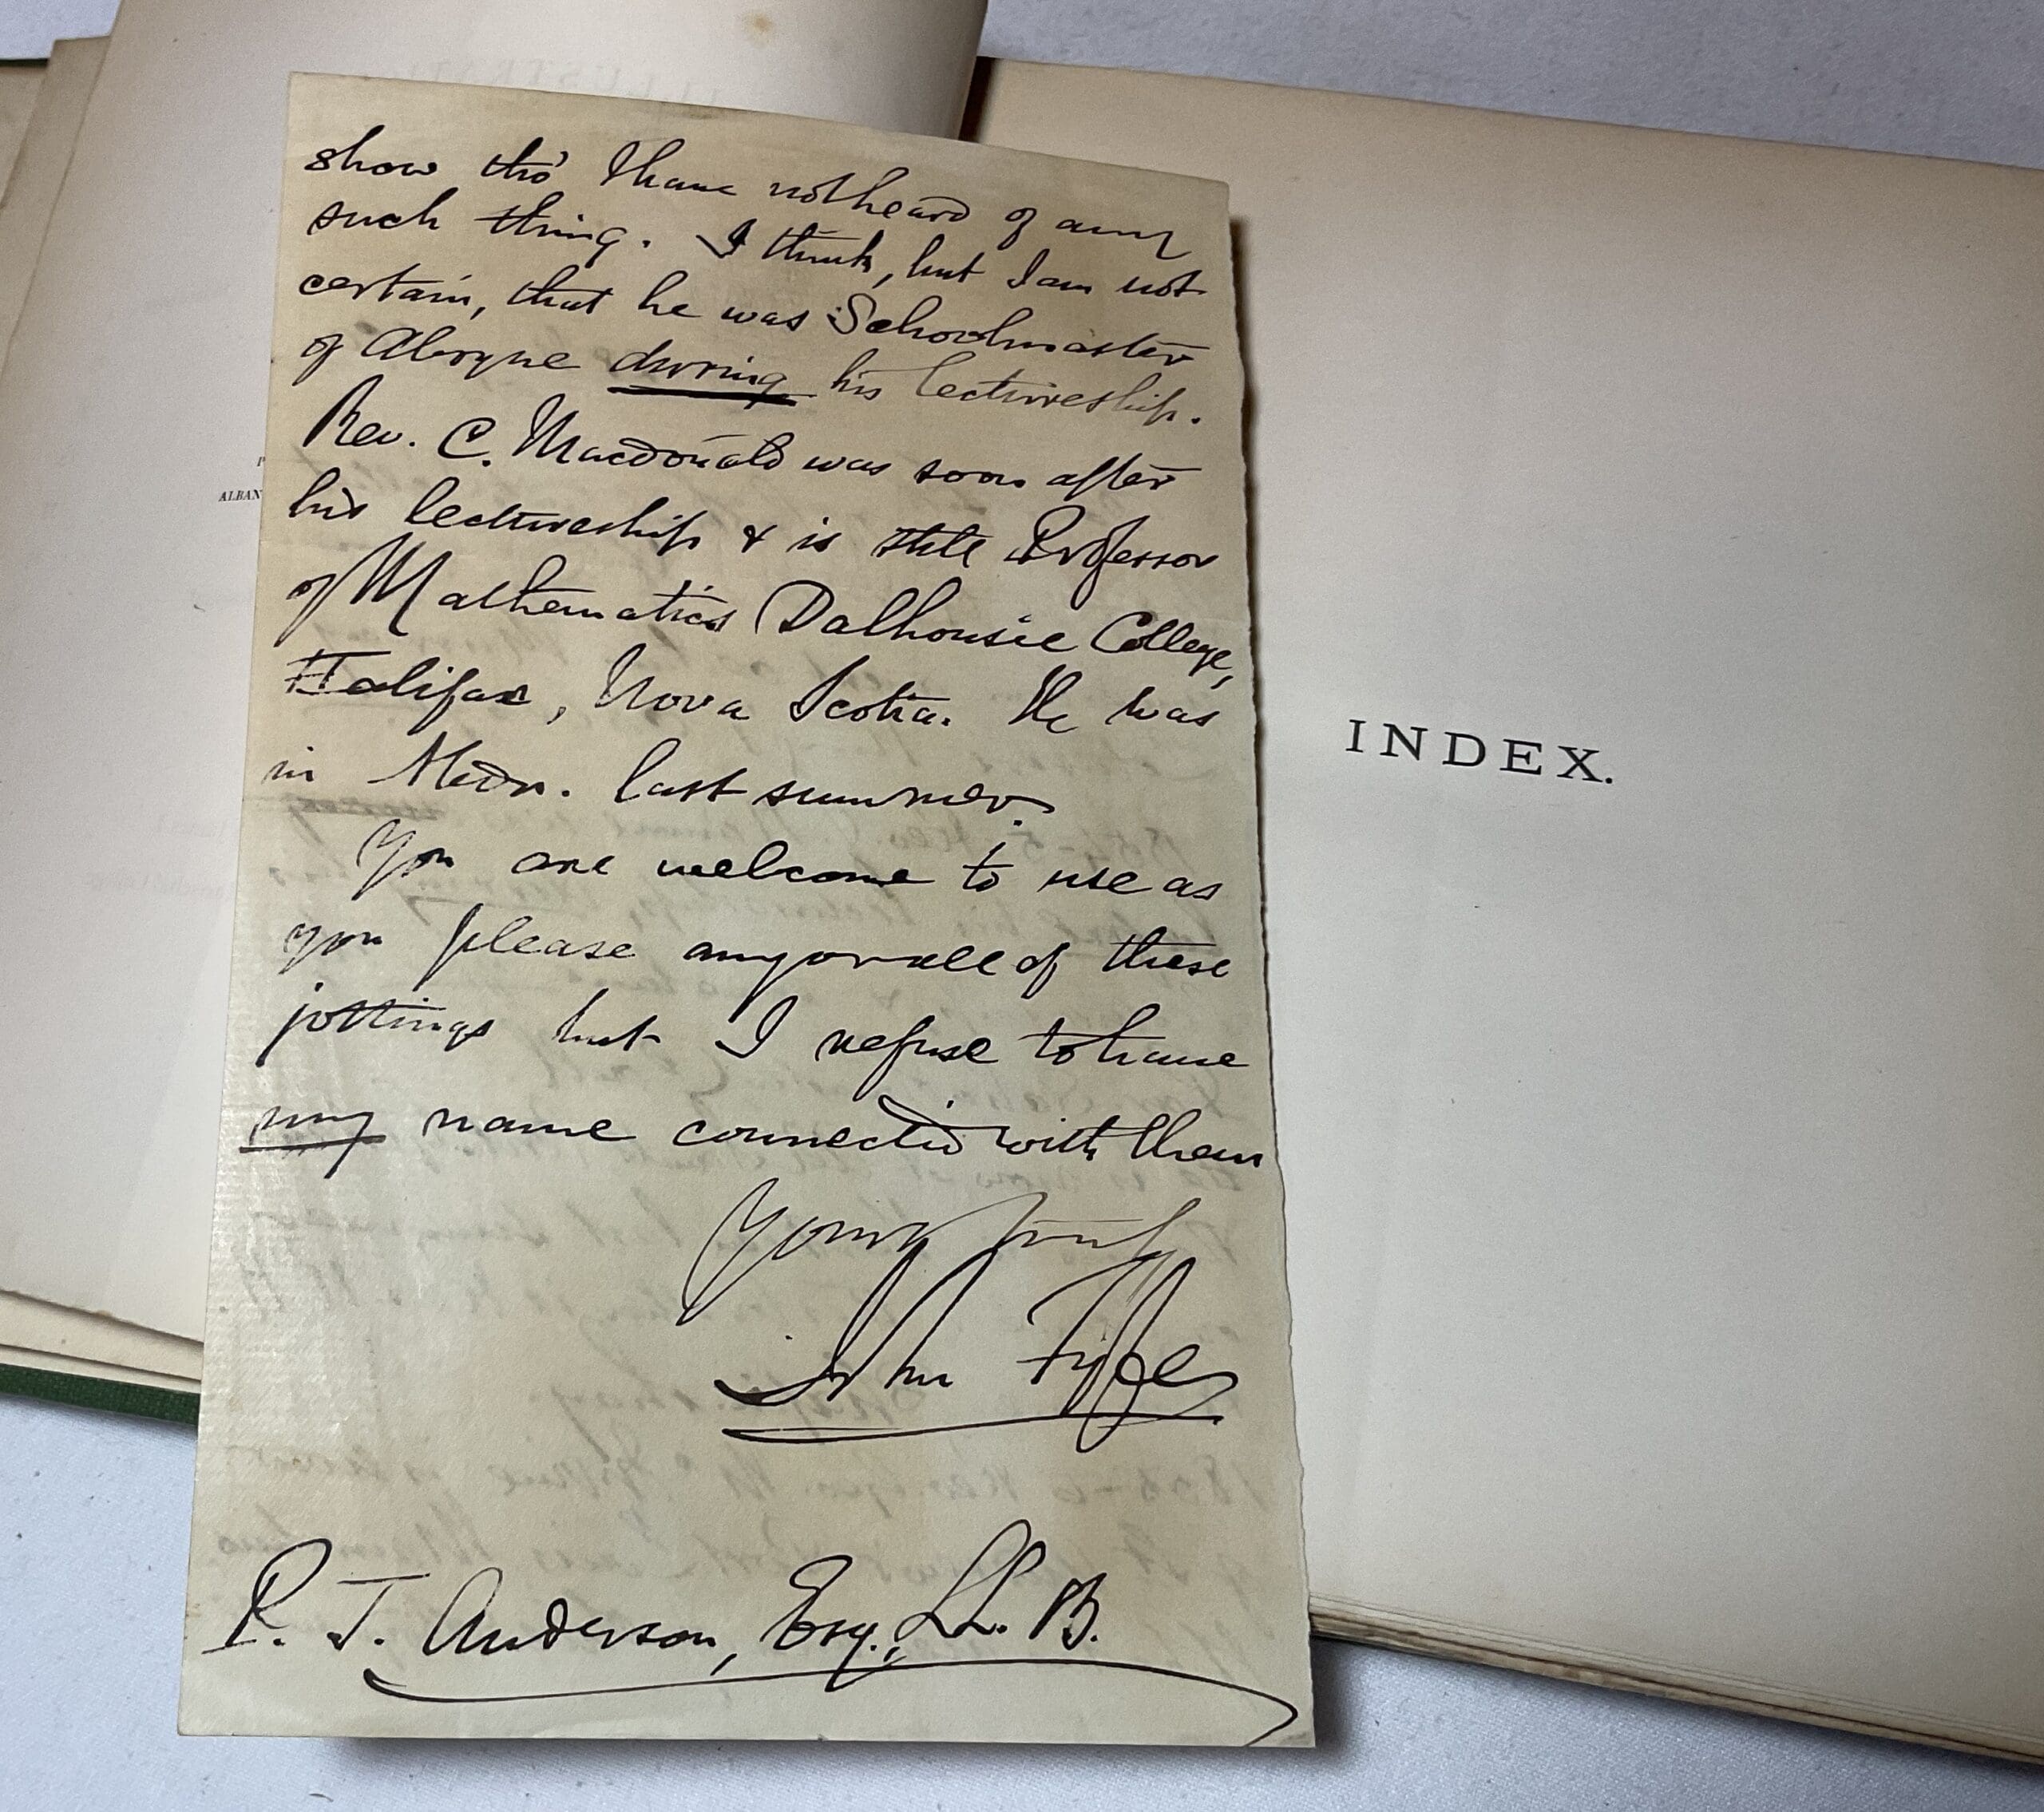 show tho' I have not heard of any
such thing. I think, but I am not
certain, that he was Schoolmaster
of Aboyne during his lectureship.
Rev. C. Macdonald was soon after
his lectureship & is still Professor
of Mathematics Dalhousie College,
Halifax, Nova Scotia. He was
in Abdn. last summer.
You are welcome to use as
you please any or all of these
jottings but I refuse to have
my name connected with them
Yours truly
John Fyfe
P. J. Anderson, Esq., LL. B.
ALBAN
INDEX.